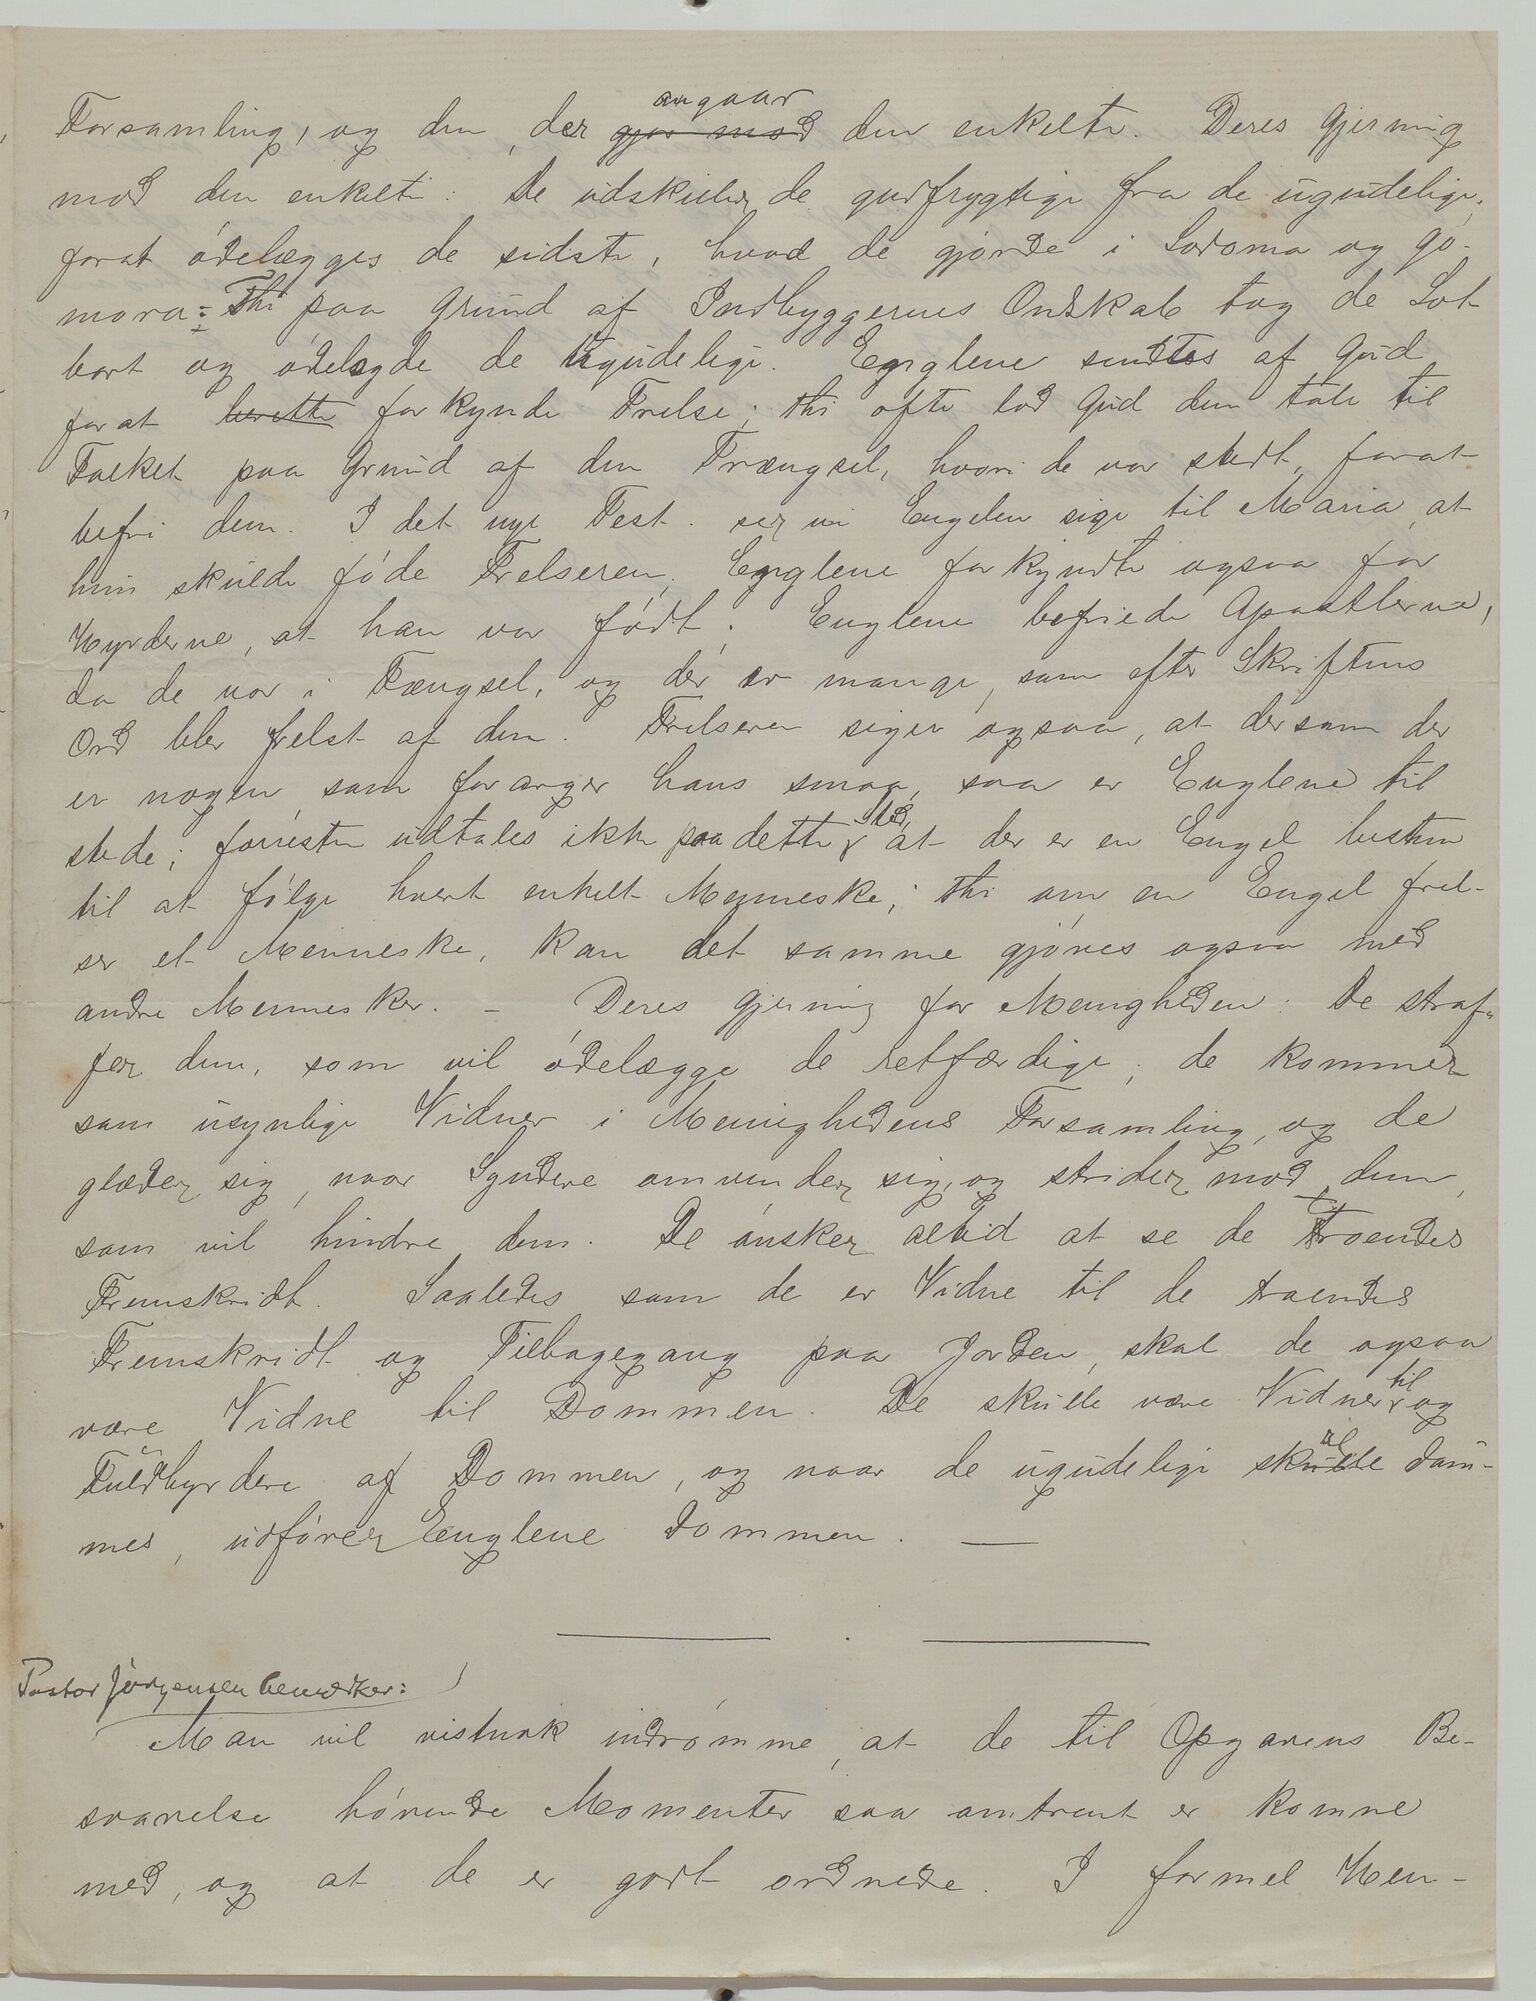 Forsamling, og den, der ~~gjør mod~~ angaar den enkelte. Deres Gjerning
mod den enkelte: De udskiller de gudfrygtige fra de ugudelige,
forat ødelægges de sidste, hvad de gjorde i Sodoma og Go-
mora: Thi paa Grund af Indbyggernes Ondskab tog de Lot
bort og ødelagde de Ugudelige. Englene sendtes af Gud
forat ~~berette~~ forkynde Frelse; thi ofte lod Gud dem tale til
Folket paa Grund af den Trængsel, hvori de var stedt, forat
befri dem. I det nye Test. ser vi Engelen sige til Maria, at
hun skulde føde Frelseren. Englene forkyndte ogsaa for
Hyrderne, at han var født. Englene befriede Apostlerne,
da de var i Fængsel, og der er mange, som efter Skriftens
Ord blev frelst af dem. Frelseren siger ogsaa, at dersom der
er nogen som forarger hans smaa, saa er Englene til
stede; forresten udtales ikke paa dette Sted, at der er en Engel bestem
til at følge hvert enkelt Menneske; thi om en Engel frel-
ser et Menneske, kan det samme gjøres ogsaa med
andre Mennesker. – Deres Gjerning for Menigheden: De straf-
fer dem, som vil ødelægge de retfærdige; de kommer
som usynlige Vidner i Menighedens Forsamling, og de
glæder sig, naar Syndere omvender sig, og strider mod dem,
som vil hindre dem. De ønsker altid at se de Troendes
Fremskridt. Saaledes som de er Vidne til de troendes
Fremskridt og Tilbagegang paa Jorden, skal de ogsaa
være Vidne til Dommen. De skulle være Vidner til og
Fuldbyrdere af Dommen, og naar de ugudelige skal døm-
mes, udfører Englene Dommen. —
Pastor Jørgensen bemærker:
Man vil vistnok indrømme, at de til Opgavens Be-
svarelse hørende Momenter saa omtrent er komne
med, og at de er godt ordnede. I formel Hen-